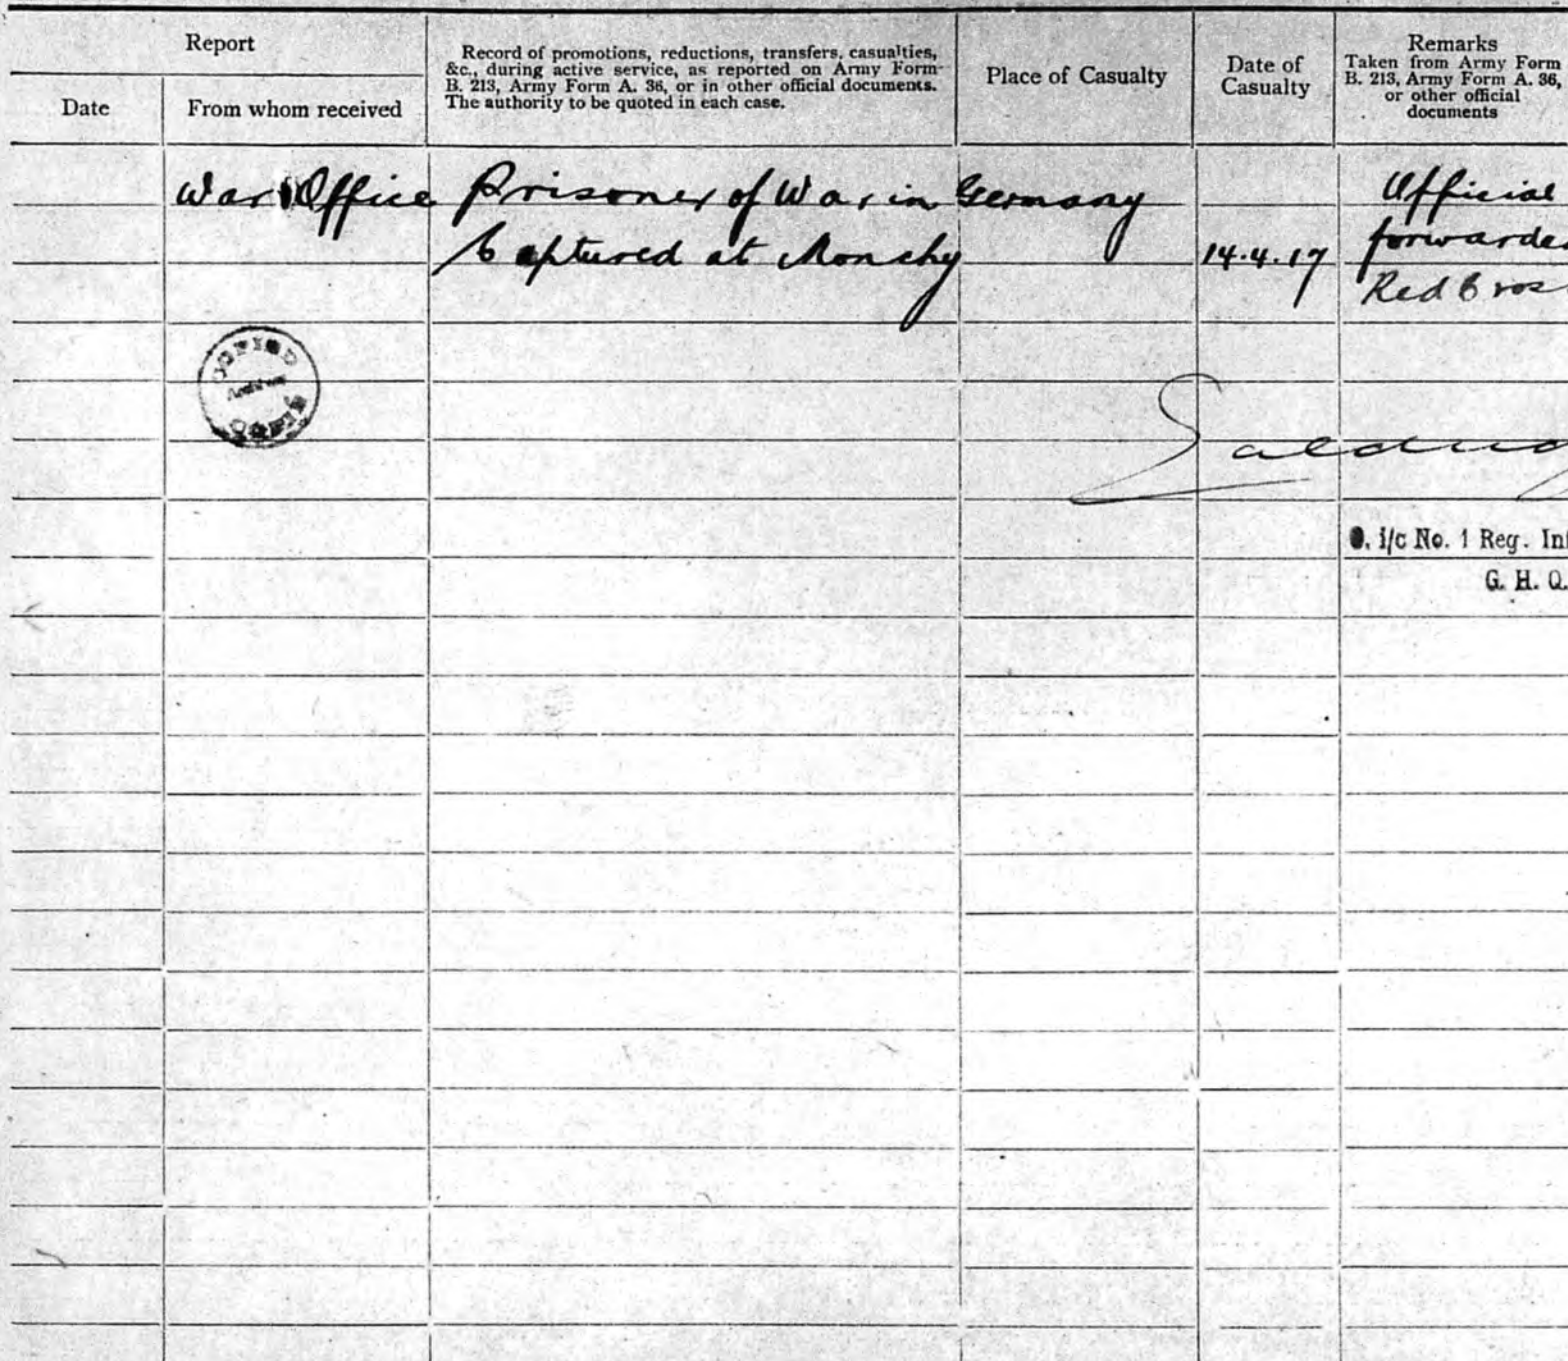 Report
Date
From whom received
Record of promotions, reductions, transfers, casualties,
&c., during active service, as reported on Army Form
B. 213, Army Form A. 36, or in other official documents.
The authority to be quoted in each case.
Place of Casualty
Date of
Casualty
Remarks
Taken from Army Form
B. 213, Army Form A. 36,
or other official
documents
War Office Prisoner of War in Germany Official
Captured at Monchy 14.4.17 forwarde
Red Cros
COPIED
i/c No. 1 Reg. Inf
G. H. Q.